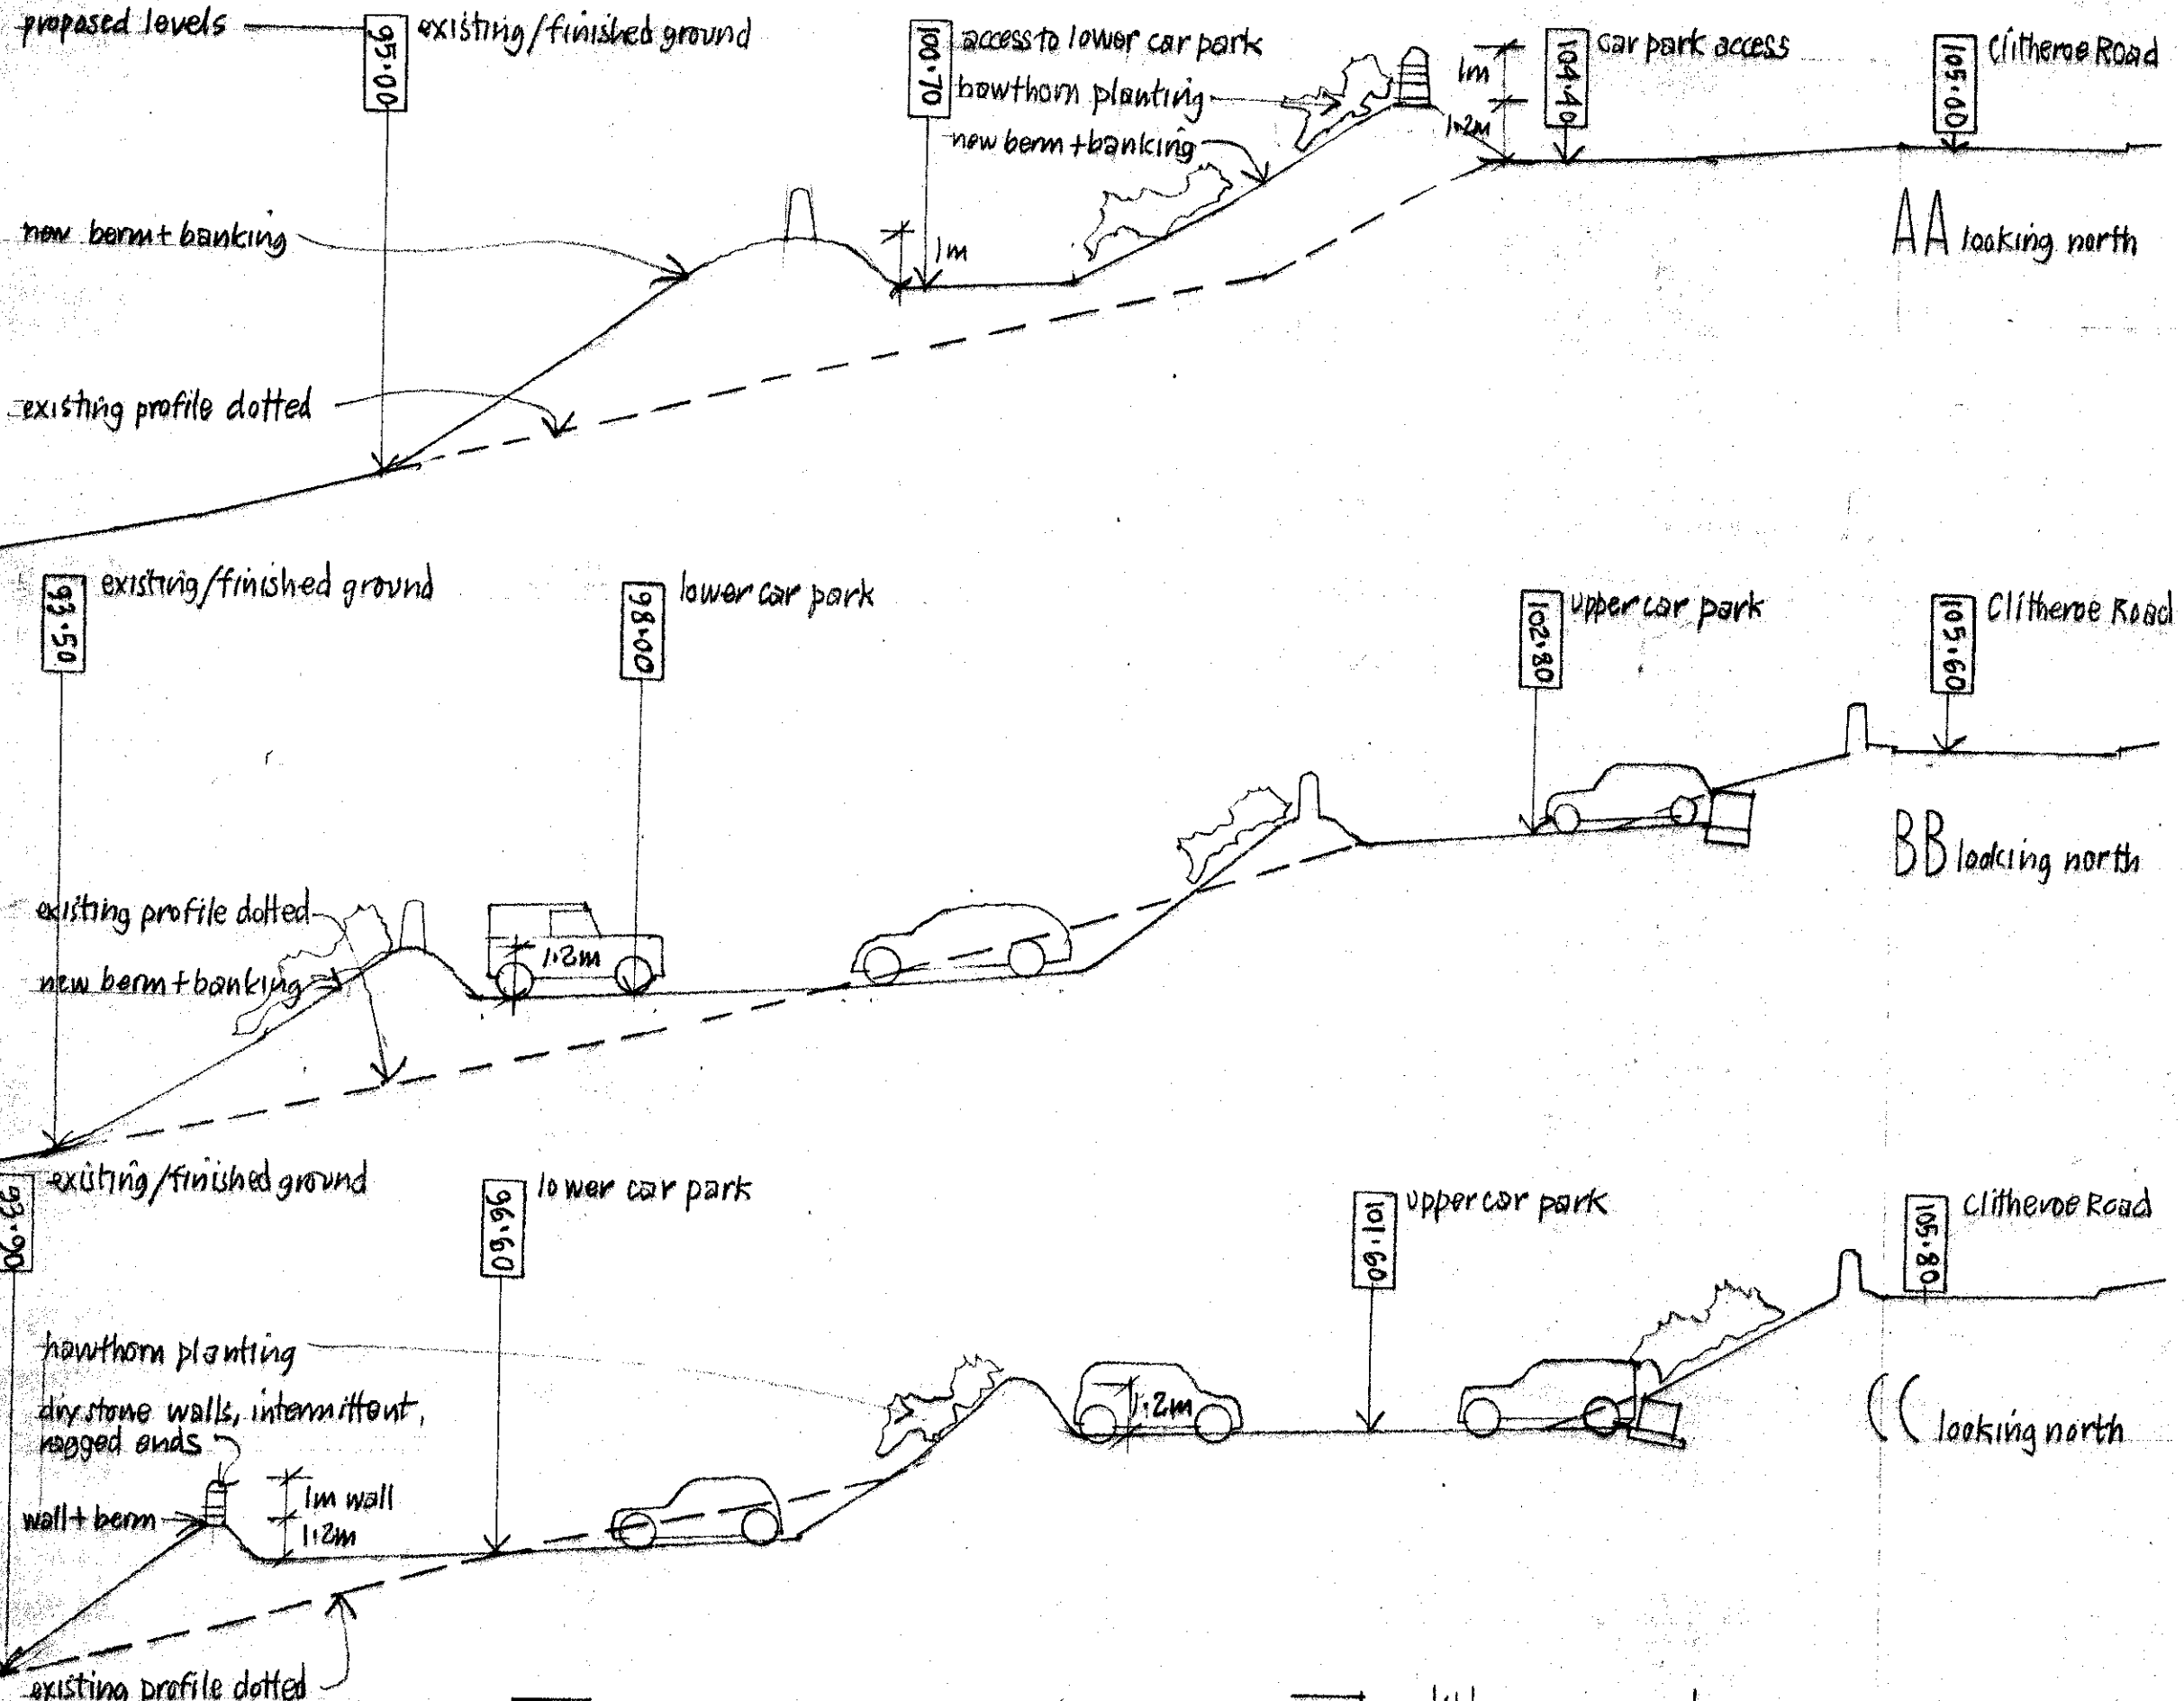 proposed levels
95.00
existing/finished ground
100.70
access to lower car park
hawthorn planting
new berm + banking
1m
1.2m
104.40
car park access
105.00
Clitheroe Road
new berm + banking
1m
AA looking north
existing profile dotted
93.50
existing/finished ground
98.00
lower car park
102.80
upper car park
105.60
Clitheroe Road
existing profile dotted
new berm + banking
1.2m
BB looking north
93.90
existing/finished ground
96.60
lower car park
101.60
upper car park
105.80
Clitheroe Road
hawthorn planting
dry stone walls, intermittent,
ragged ends
wall + berm
1m wall
1.2m
1.2m
CC looking north
existing profile dotted